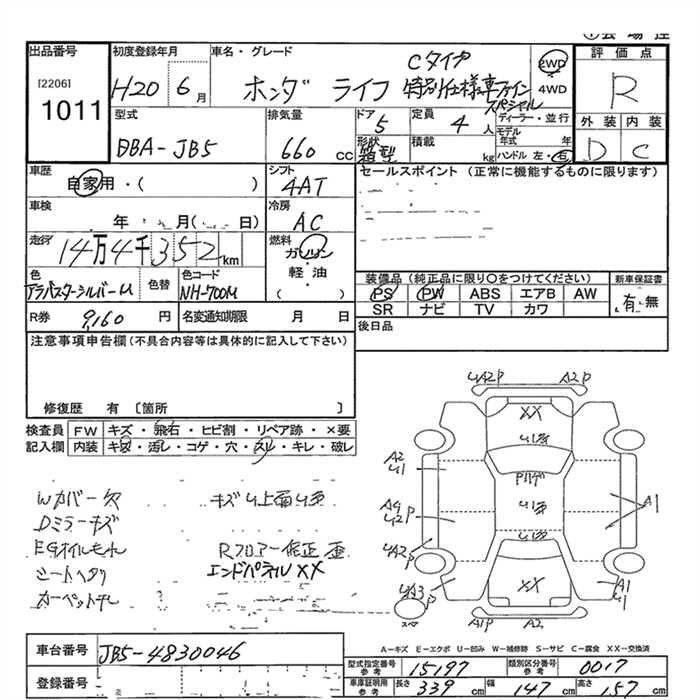 出品番号 初度登録年月 車名・グレード 評価点
[2206] 1011
H20 6月 ホンダ ライフ Cタイプ 特別仕様車ファインスペシャル
2WD 4WD
R
型式 排気量 ドア 定員 ディーラー・並行 外装 内装
DBA-JB5 660 cc 5 4 人 モデル年式 年
形状 箱型 積載 kg ハンドル 左・右 D C
車歴 シフト セールスポイント (正常に機能するものに限ります)
自家用・( ) 4AT
車検 年 月( 日) 冷房 AC
走行 14万4千352km 燃料 ガソリン・軽油 ( )
装備品 (純正品に限り〇をつけてください) 新車保証書
色 色替 色コード PS PW ABS エアB AW 有・無
アラバスターシルバーM NH-700M SR ナビ TV カワ
R券 9,160 円 名変通知期限 月 日 後日品
注意事項申告欄(不具合内容等は具体的に記入して下さい)
修復歴 有 〔箇所 〕
検査員 FW キズ・飛石・ヒビ割・リペア跡・×要
記入欄 内装 キズ・汚し・コゲ・穴・スレ・キレ・破レ
Wカバー欠 キズU上面U歪
Dミラーキズ
EGオイルモレ Rフロアー修正歪
シートヘタリ エンドパネルXX
カーペット汚レ
U A2P A2P
XX
A2
U1
A4
U2P
UA2P
A1
XX
UA3P
スペア
A1
U
A1P A2
A-キズ E-エクボ U-凹み W-補修跡 S-サビ C-腐食 XX-交換済
車台番号 JB5-4830046
型式指定番号 参考 15197 類別区分番号 参考 0017
登録番号
車庫証明用 参考 長さ 339 cm 幅 147 cm 高さ 157 cm